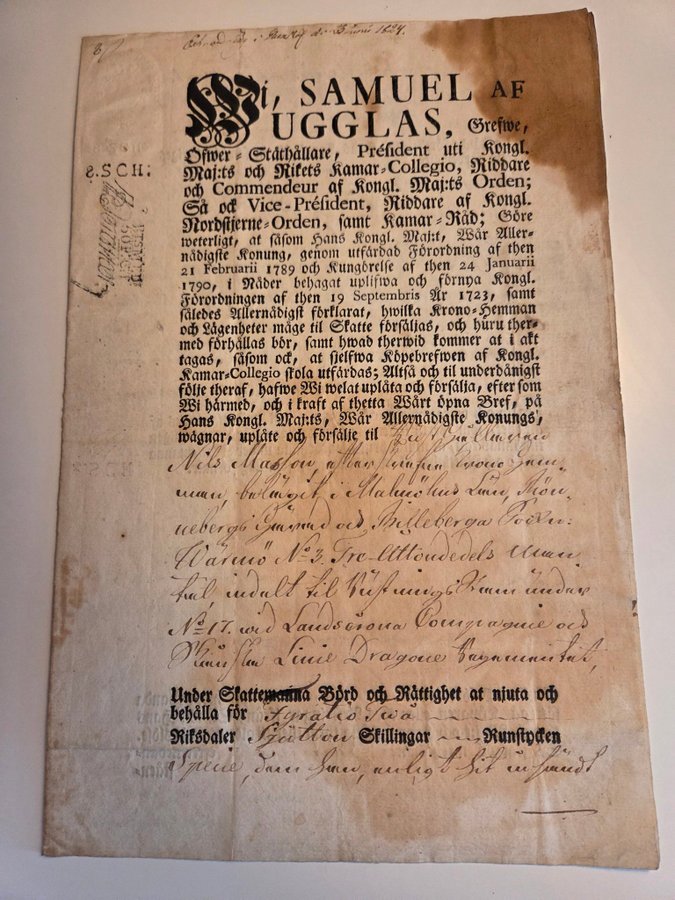 Wi, SAMUEL AF
UGGLAS, Grefwe,
Öfwer-Ståthållare, Président uti Kongl.
Maj:ts och Rikets Kamar-Collegio, Riddare
och Commendeur af Kongl. Maj:ts Orden;
Så ock Vice-Président, Riddare af Kongl.
Nordstjerne-Orden, samt Kamar-Råd; Göre
weterligt, at såsom Hans Kongl. Maj:t, Wår Aller-
nådigste Konung, genom utfärdad Förordning af then
21 Februarii 1789 och Kungörelse af then 24 Januarii
1790, i Nåder behagat uplifwa och förnya Kongl.
Förordningen af then 19 Septembris År 1723, samt
således Allernådigst förklarat, hwilka Krono-Hemman
och Lägenheter måge til Skatte försäljas, och huru ther-
med förhållas bör, samt hwad therwid kommer at i akt
tagas, såsom ock, at sjelfwa Köpebrefwen af Kongl.
Kamar-Collegio skola utfärdas; Altså och til underdånigst
följe theraf, hafwe Wi welat uplåta och försälja, efter som
Wi härmed, och i kraft af thetta Wårt öpna Bref, på
Hans Kongl. Maj:ts, Wår Allernådigste Konungs,
wägnar, uplåte och försälje til Rusthållaren
Nils Masson, efterskrefne Krono Hem-
man, beläget i Malmöhus Län, Rön-
nebergs Härad och Billeberga Sockn:
Wärmö No 3. Tre Åttondedels Man
tal, indelt til Rustningsstam under
No 17. wid Landscrona Compagnie och
Skånska Linie Dragone Regementet,
Under Skattemanna Börd och Rättighet at njuta och
behålla för Fyratio Två
Riksdaler Sjutton Skillingar Runstycken
Specie, dem han, enligt hit insändt
S.SCH: